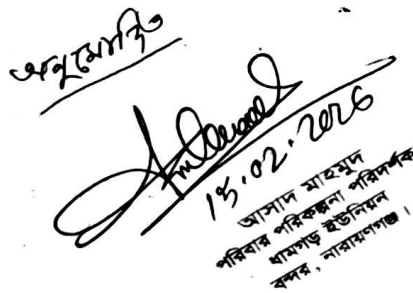 অনুমোদিত
15.02.2026
আসাদ মাহমুদ
পরিবার পরিকল্পনা পরিদর্শক
ধামগড় ইউনিয়ন
বন্দর, নারায়ণগঞ্জ।